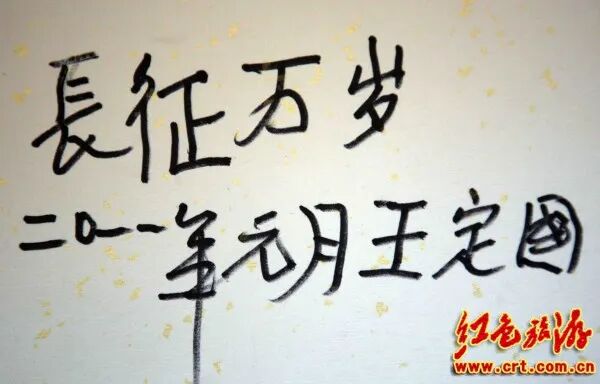 長征万岁
二〇一一年元月王定國
红色旅游
www.crt.com.cn